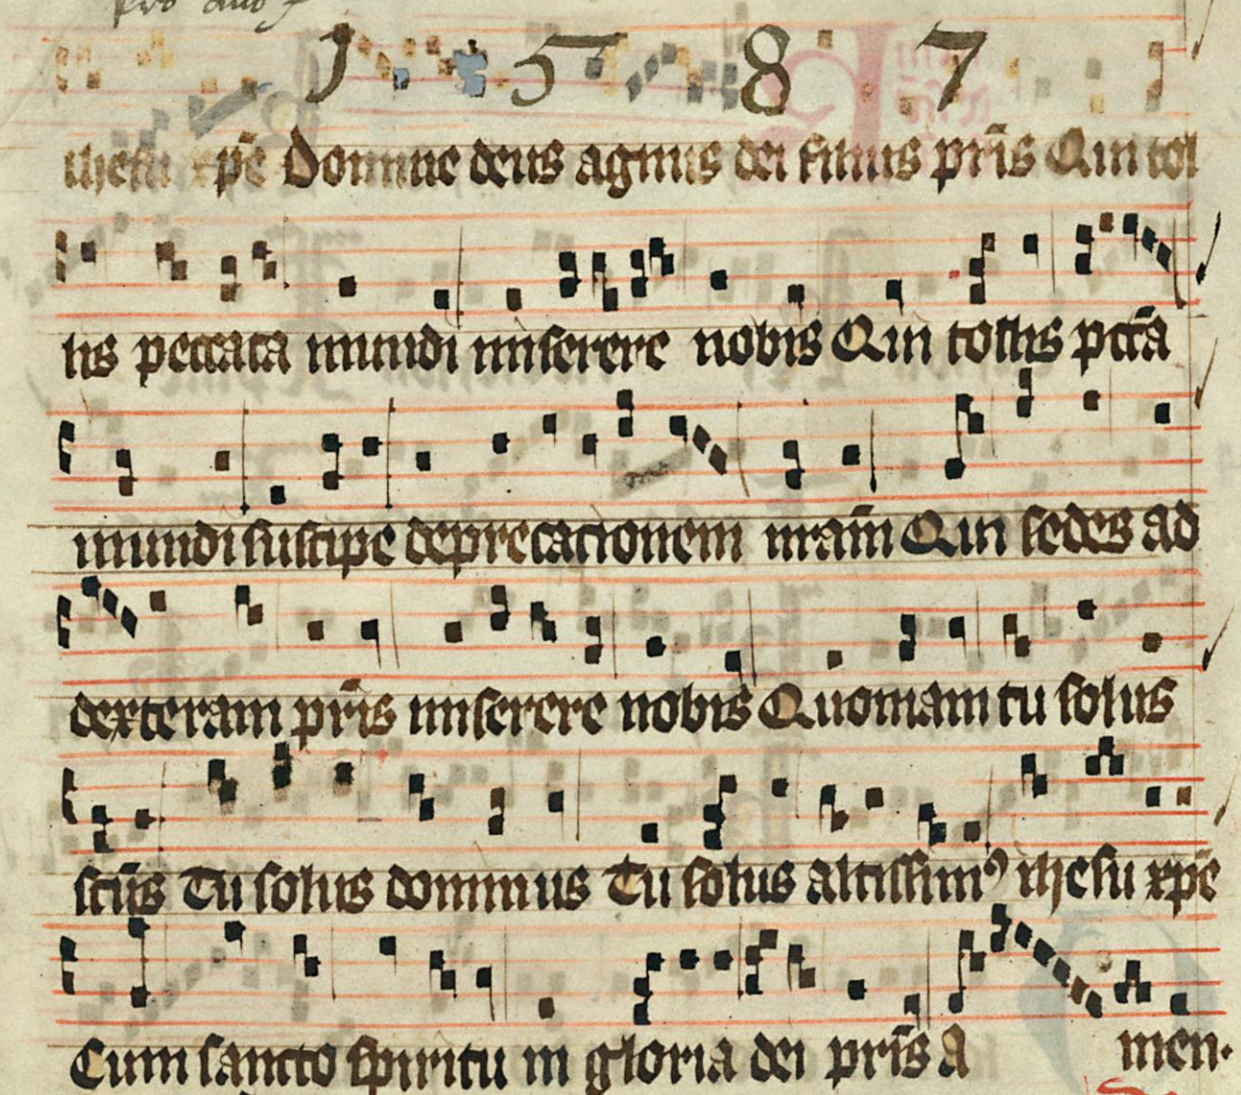 pro anno
1587
ihesu xp̄e Domine deus agnus dei filius pr̄is Qui tol
lis peccata mundi miserere nobis Qui tollis pctā
mundi suscipe deprecationem nr̄am Qui sedes ad
dexteram pr̄is miserere nobis Quoniam tu solus
sctūs Tu solus dominus Tu solus altissimꝰ ihesu xp̄e
Cum sancto spiritu in gloria dei pr̄is A men·